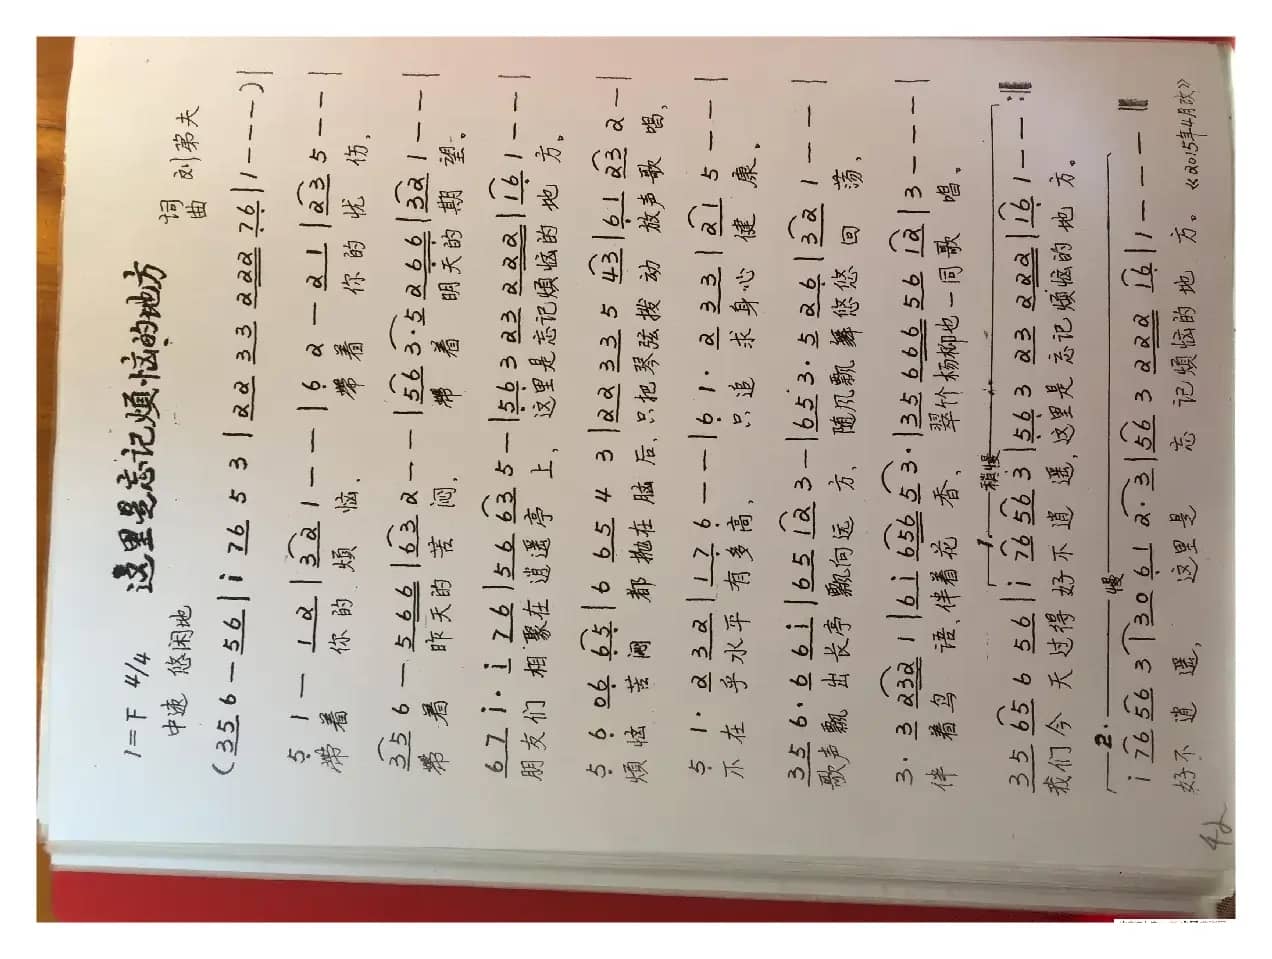 这里是忘记烦恼的地方
1=F 4/4
中速 悠闲地
词曲 刘第夫
(356-56|i 76 5 3|22 33 222 76|1---)|
5 1 - 12|32 1--|6 2-21|23 5---|
带着 你的烦恼、带着你的忧伤,
35 6-566|63 2--|56 3·5 266|32 1---|
带着昨天的苦闷,带着明天的期望。
67 i·i 76|56 63 5-|563 23 222|16 1---|
朋友们相聚在逍遥亭上,这里是忘记烦恼的地方。
5 6 06 65|6 65 4 3|22 33 5 43|61 23 2-|
烦恼苦闷都抛在脑后,只把琴弦拨动放声歌唱,
5 1·2 32|17 6--|6 1·2 33|21 5--|
不在乎水平有多高,只追求身心健康。
35 6·6 6i|65 12 3-|65 3·5 26|32 1--|
歌声飘出长亭飘向远方,随风飘舞悠悠回荡,
3·3 232 1|6i 656 53·|35 666 56 12|3---|
伴着鸟语、伴着花香、翠竹杨柳也一同歌唱。
1. 稍慢
35 65 6 56|i 76 56 3|563 23 222|16 1--:|
我们今天过得好不逍遥,这里是忘记烦恼的地方。
2. 慢
i 76 56 3|30 61 2·3|56 3 222 16|1---|
好不逍遥,这里是忘记烦恼的地方。
《2015年4月改》
42